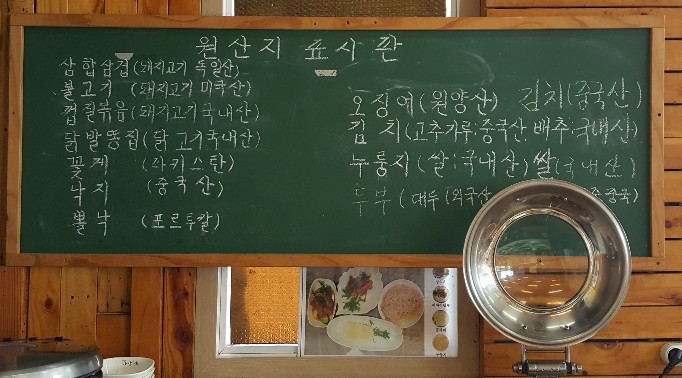 원산지 표시판
삼합삼겹(돼지고기 독일산)
불고기 (돼지고기 미국산)
껍질볶음(돼지고기국내산)
닭발똥집(닭고기국내산)
꽃게 (파키스탄)
낙지 (중국산)
뻘낙 (포르투칼)
오징어(원양산) 김치(중국산)
김치(고추가루:중국산, 배추:국내산)
누룽지(쌀:국내산) 쌀(국내산)
두부(대두(외국산 중국)